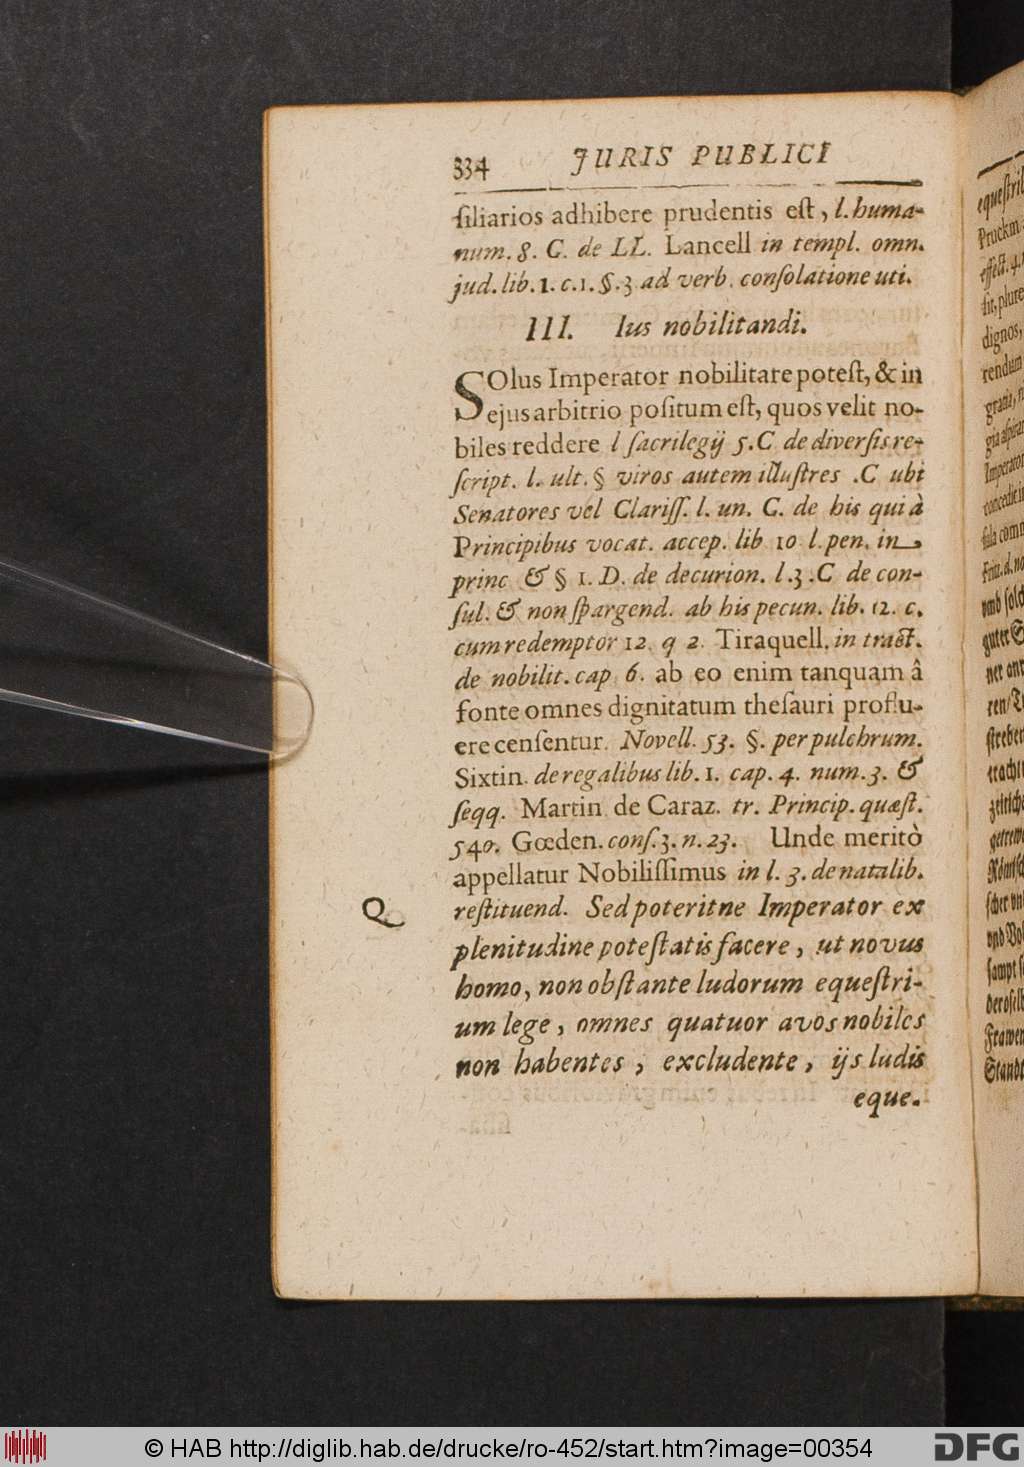 334 JURIS PUBLICI
siliarios adhibere prudentis est, l. huma-
num. 8. C. de LL. Lancell in templ. omn.
jud. lib. 1. c. 1. §. 3 ad verb. consolatione uti.
III. Ius nobilitandi.
SOlus Imperator nobilitare potest, & in
ejus arbitrio positum est, quos velit no-
biles reddere l sacrilegij 5. C de diversis re-
script. l. ult. § viros autem illustres .C ubi
Senatores vel Clariss. l. un. C. de his qui à
Principibus vocat. accep. lib 10 l. pen. in
princ & § 1. D. de decurion. l .3 .C de con-
sul. & non spargend. ab his pecun. lib. 12. c.
cum redemptor 12. q 2. Tiraquell. in tract.
de nobilit. cap 6. ab eo enim tanquam â
fonte omnes dignitatum thesauri proflu-
ere censentur. Novell. 53. §. per pulchrum.
Sixtin. de regalibus lib. 1. cap. 4. num. 3. &
seqq. Martin de Caraz. tr. Princip. quæst.
540. Gœden. cons. 3. n. 23. Unde meritò
appellatur Nobilissimus in l. 3. de natalib.
Q restituend. Sed poteritne Imperator ex
plenitudine potestatis facere, ut novus
homo, non obstante ludorum equestri-
um lege, omnes quatuor avos nobiles
non habentes, excludente, ijs ludis
eque.
equestrib
Pruckm
effect. 4.
sit, plure
dignos,
rendum
gratia,
gia aspirar
Imperator
concedit
sula comm
Fritz. d. no
vnd solch
guter S
ner ant
ren/
streber
tracht
zeitliche
getrewe
Römisch
scher vn
vnd Vol
sampt s
deroselb
Frawen
Standt
© HAB http://diglib.hab.de/drucke/ro-452/start.htm?image=00354
DFG